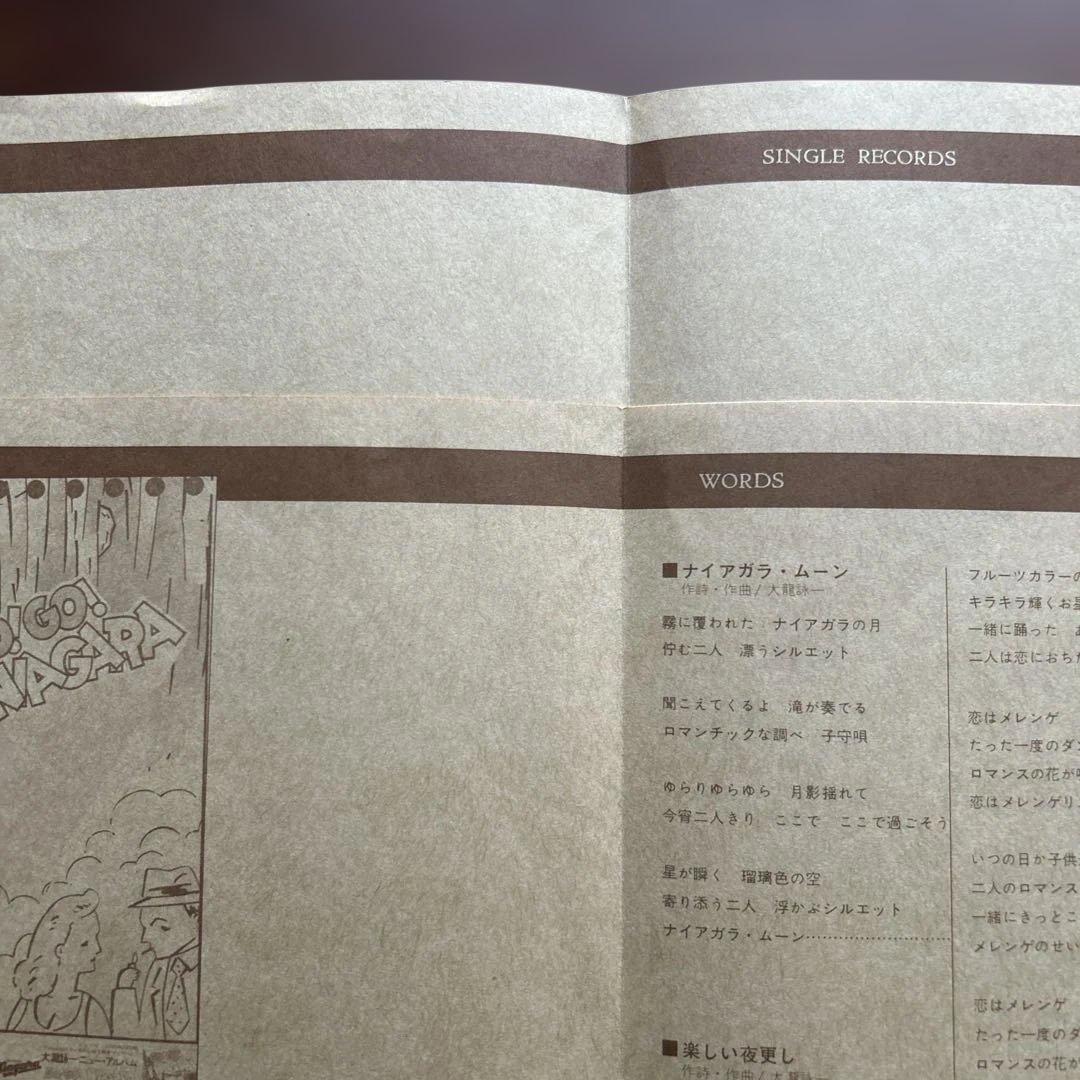 SINGLE RECORDS
WORDS
GO!
NIAGARA
大瀧詠一ニュー・アルバム
■ナイアガラ・ムーン
作詩・作曲/大瀧詠一
霧に覆われた ナイアガラの月
佇む二人 漂うシルエット
聞こえてくるよ 滝が奏でる
ロマンチックな調べ 子守唄
ゆらりゆらゆら 月影揺れて
今宵二人きり ここで ここで過ごそう
星が瞬く 瑠璃色の空
寄り添う二人 浮かぶシルエット
ナイアガラ・ムーン……………………
■楽しい夜更し
作詩・作曲/大瀧詠一
フルーツカラーの
キラキラ輝くお星
一緒に踊った
二人は恋におちた
恋はメレンゲ
たった一度のダン
ロマンスの花が咲
恋はメレンゲリン
いつの日か子供
二人のロマンス
一緒にきっとこ
メレンゲのせい
恋はメレンゲ
たった一度のダ
ロマンスの花が